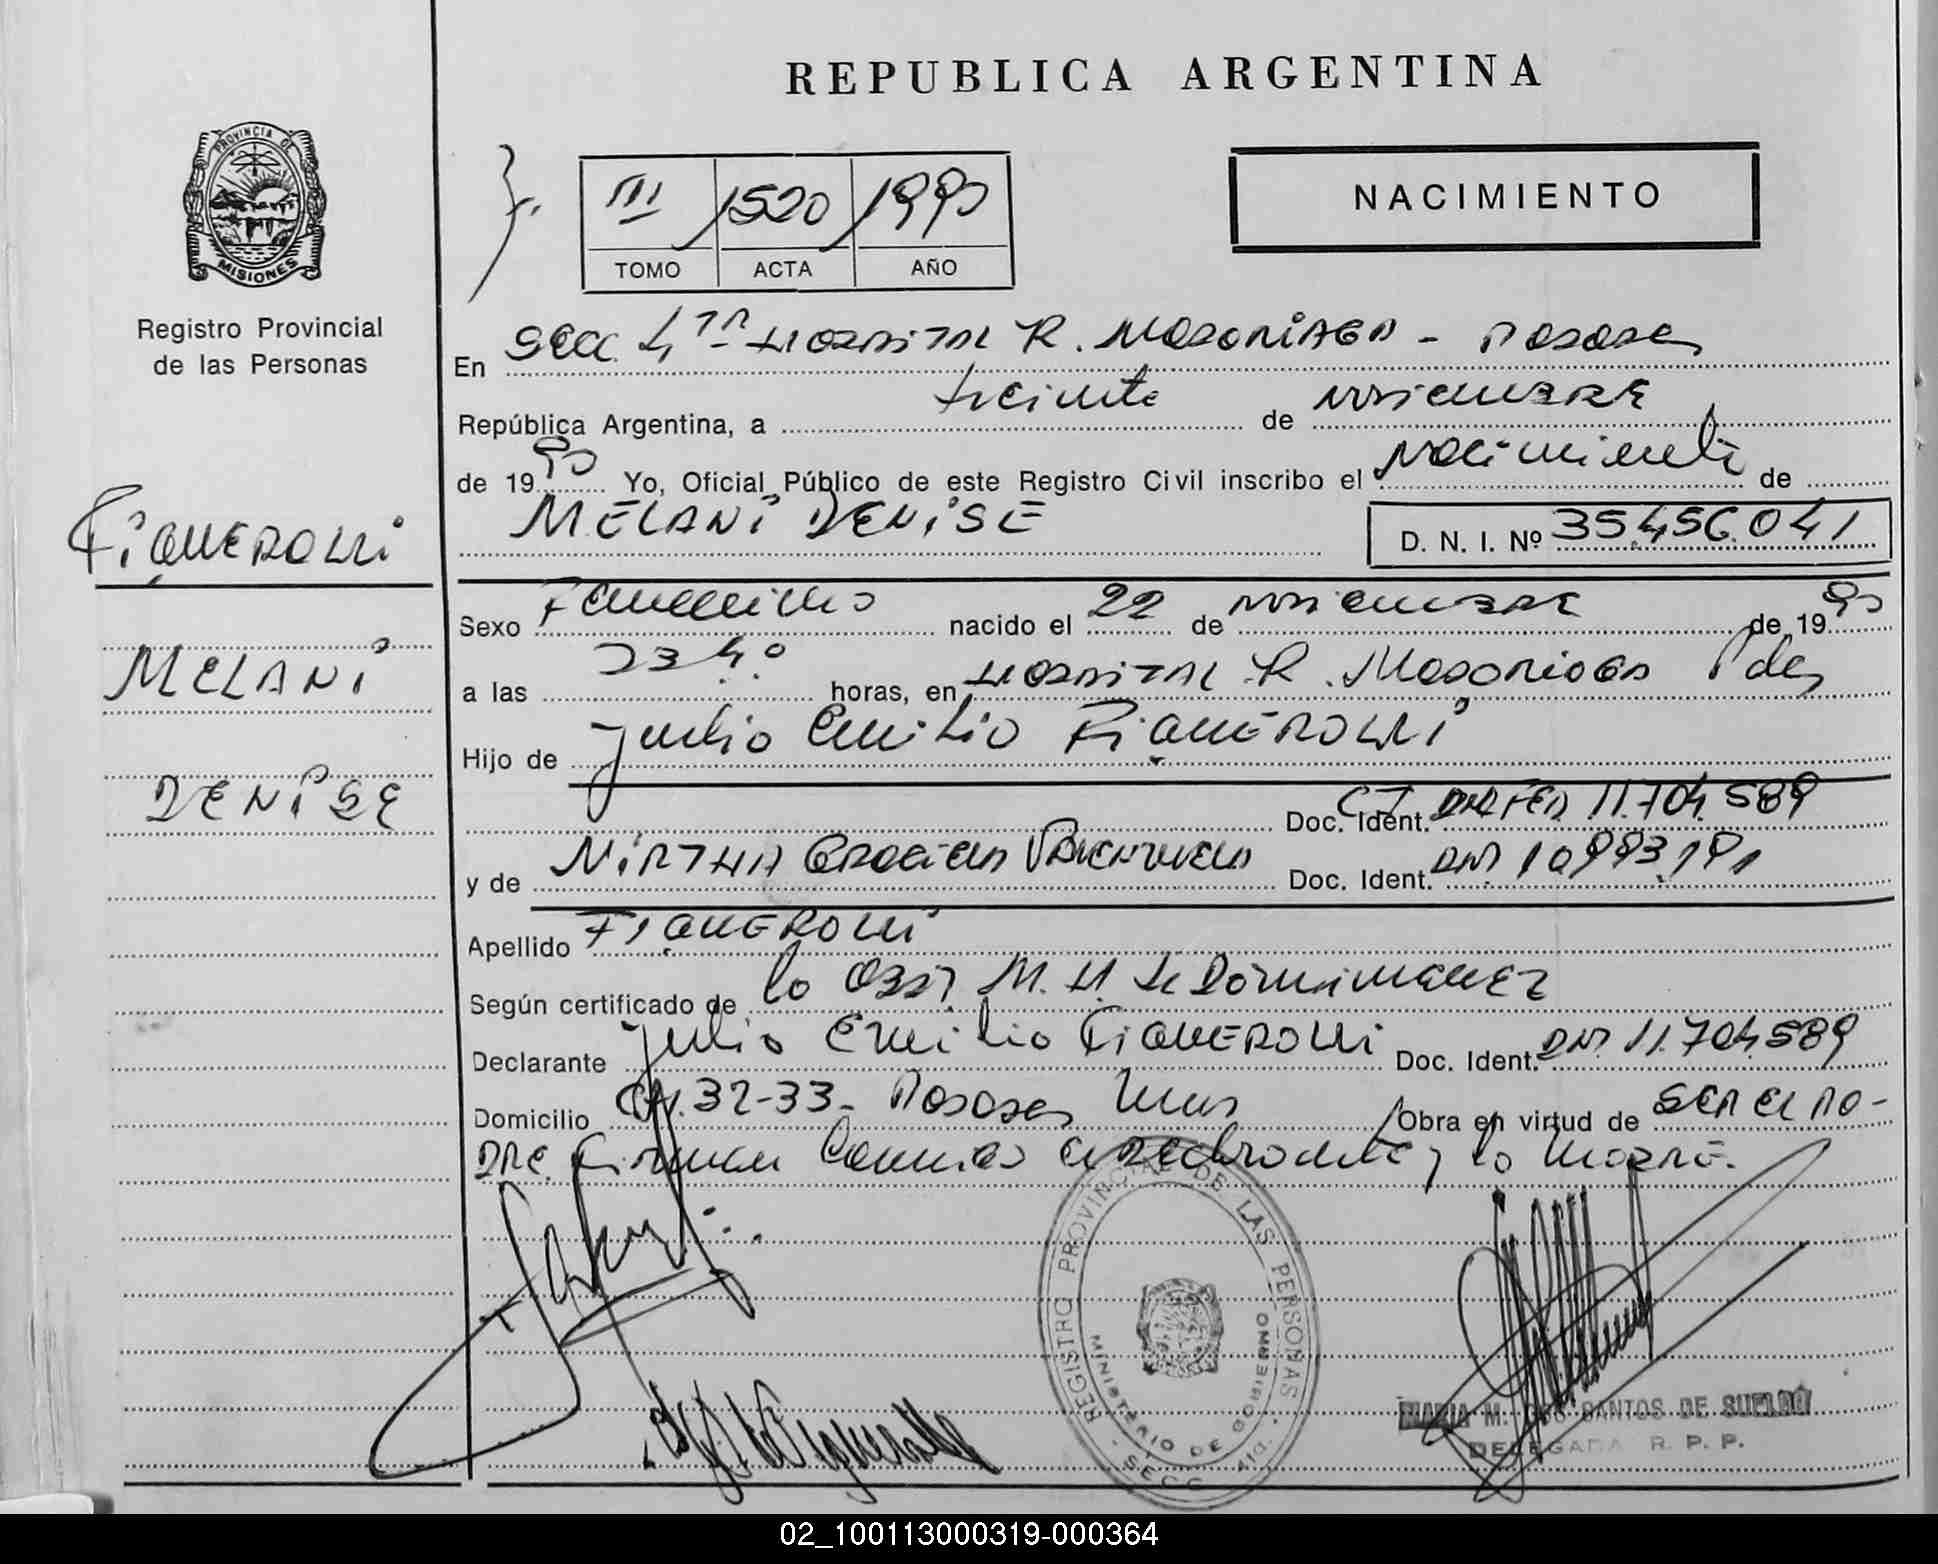 REPUBLICA ARGENTINA
PROVINCIA DE
MISIONES
Registro Provincial
de las Personas
III 1520 1990
TOMO ACTA AÑO
NACIMIENTO
En Secc. 4ta Hospital R. Madariaga - Posadas
República Argentina, a treinta de noviembre
de 1990 Yo, Oficial Público de este Registro Civil inscribo el Nacimiento de
MELANI DENISE D. N. I. Nº 35.456.041
Figueroa
MELANI
DENISE
Sexo Femenino nacido el 22 de noviembre de 1990
a las horas, en Hospital R. Madariaga Pdas
Hijo de Julio Emilio
Doc. Ident. 11.704.589
y de Mirtha Graciela Valenzuela Doc. Ident. DNI 10.993.191
Apellido
Según certificado de la Obst. M. H. de
Declarante Julio Emilio Doc. Ident. DNI. 11.704.589
Domicilio Ch. 32-33- Posadas Mnes Obra en virtud de ser el pa-
dre. Firman Conmigo el declarante y la Madre.
REGISTRO PROVINCIAL DE LAS PERSONAS
MINISTERIO DE GOBIERNO
SECC. 4ta.
MARIA M. DOS SANTOS DE SUELDO
DELEGADA R. P. P.
02_100113000319-000364